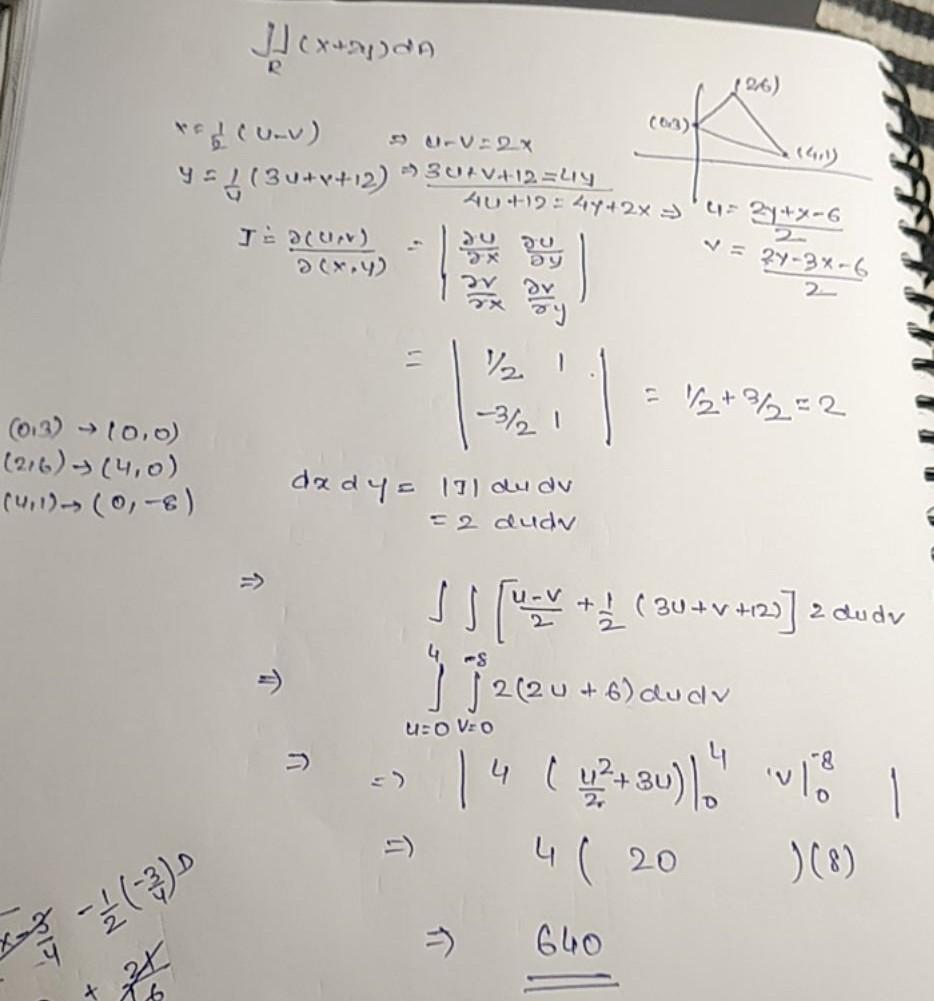 ∬_R (x+2y) dA
(2,6)
(0,3)
(4,1)
x = 1/2 (u-v) ⇒ u-v=2x
y = 1/4 (3u+v+12) ⇒ 3u+v+12=4y
4u+12 = 4y+2x ⇒ u = (2y+x-6)/2
v = (2y-3x-6)/2
J = ∂(u,v)/∂(x,y) = | ∂u/∂x ∂u/∂y |
| ∂v/∂x ∂v/∂y |
= | 1/2 1 | = 1/2 + 3/2 = 2
| -3/2 1 |
(0,3) → (0,0)
(2,6) → (4,0)
(4,1) → (0,-8)
dx dy = |J| du dv
= 2 du dv
⇒ ∫∫ [(u-v)/2 + 1/2 (3u+v+12)] 2 du dv
⇒ ∫_{u=0}^{4} ∫_{v=0}^{-8} 2(2u+6) du dv
⇒ => | 4 (u²/2 + 3u)|_0^4 v|_0^{-8} |
⇒ 4( 20 )(8)
⇒ 640
-1/2 (-3/4)